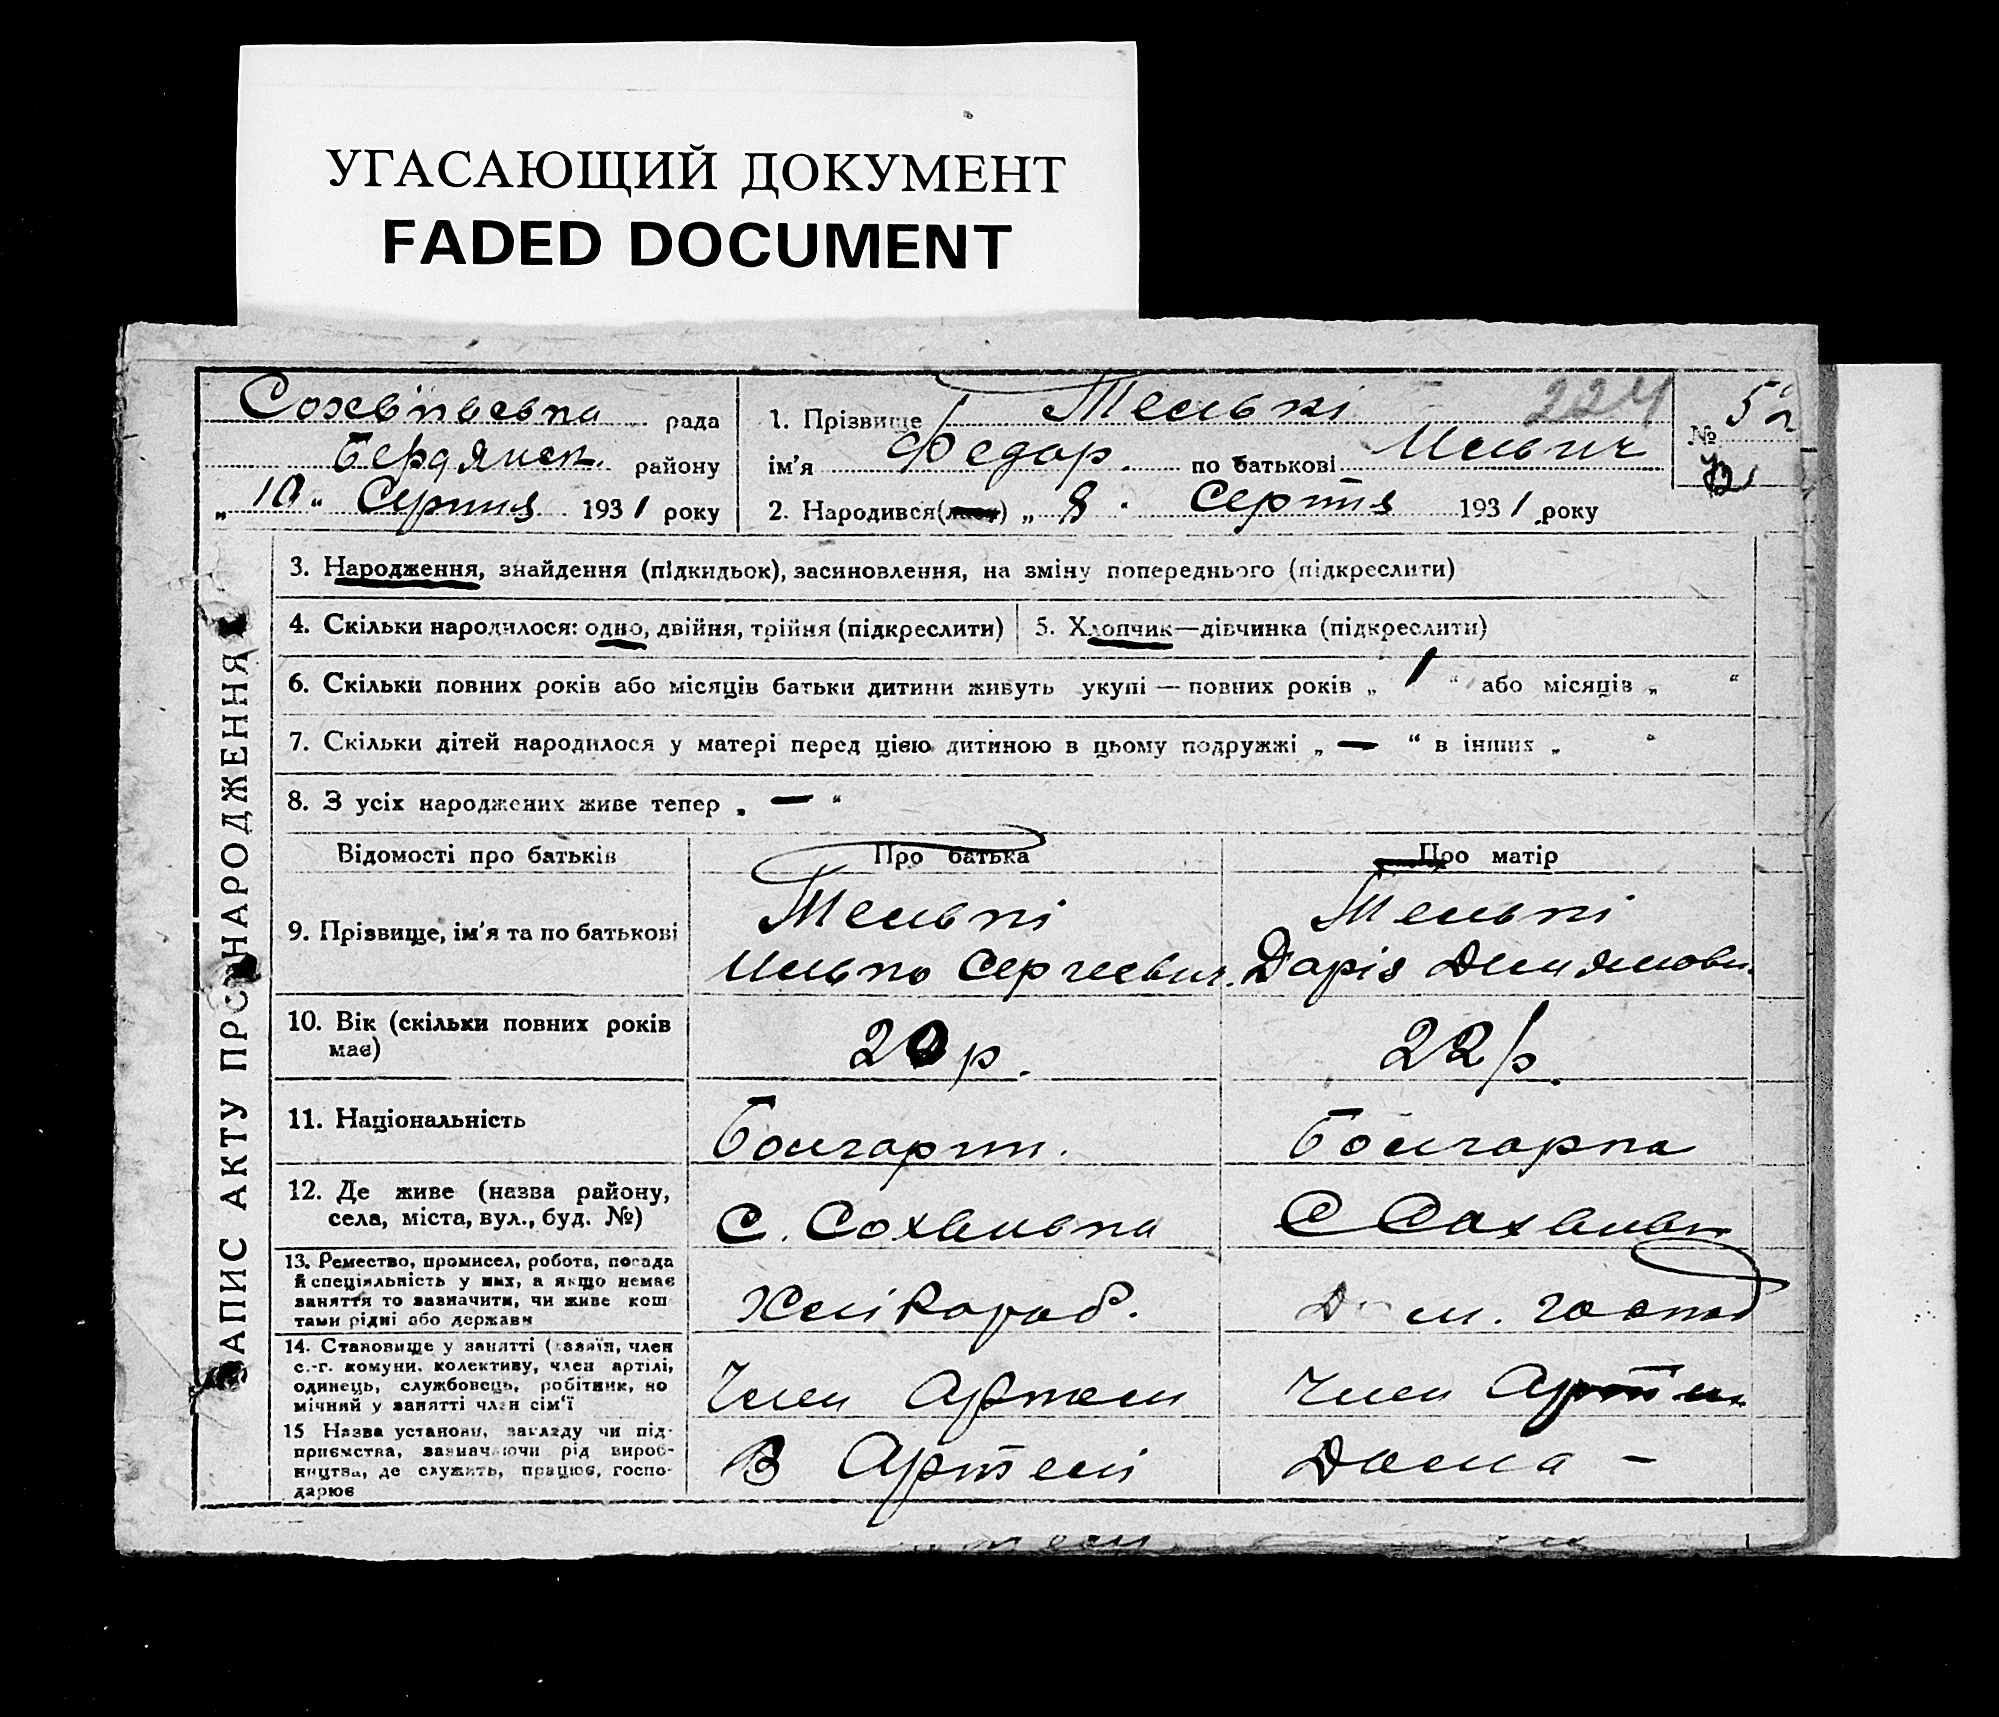 УГАСАЮЩИЙ ДОКУМЕНТ
FADED DOCUMENT
рада
Бердянск. району
„10“ Серпня 1931 року
1. Прізвище Тельпі 224
ім'я Федор. по батькові Ильич
2. Народився() „8. Серпня 1931 року
№ 52
ЗАПИС АКТУ ПРО НАРОДЖЕННЯ
3. Народження, знайдення (підкидьок), засиновлення, на зміну попереднього (підкреслити)
4. Скільки народилося: одно, двійня, трійня (підкреслити)
5. Хлопчик—дівчинка (підкреслити)
6. Скільки повних років або місяців батьки дитини живуть укупі — повних років „ 1 “ або місяців „ “
7. Скільки дітей народилося у матері перед цією дитиною в цьому подружжі „ — “ в інших „ “
8. З усіх народжених живе тепер „ — “
Відомості про батьків
Про батька
Про матір
9. Прізвище, ім'я та по батькові
Тельпі
Илько Сергеевич.
Тельпі
Дарія
10. Вік (скільки повних років
має)
20 р.
22 р.
11. Національність
Болгарин.
Болгарка
12. Де живе (назва району,
села, міста, вул., буд. №)
С.
С
13. Ремество, промисел, робота, посада
й спеціяльність у них, а якщо немає
заняття то зазначити, чи живе кош
тами рідні або держави
Хлікороб.
Дом. господ
14. Становище у занятті (хазяїн, член
с.-г. комуни, колективу, член артілі,
одинець, службовець, робітник, по
мічний у занятті член сім'ї
Член Артели
Член Артели
15 Назва установи, закладу чи під-
приємства, зазначаючи рід вироб-
ництва, де служить, працює, госпо-
дарює
В Артелі
Дома –